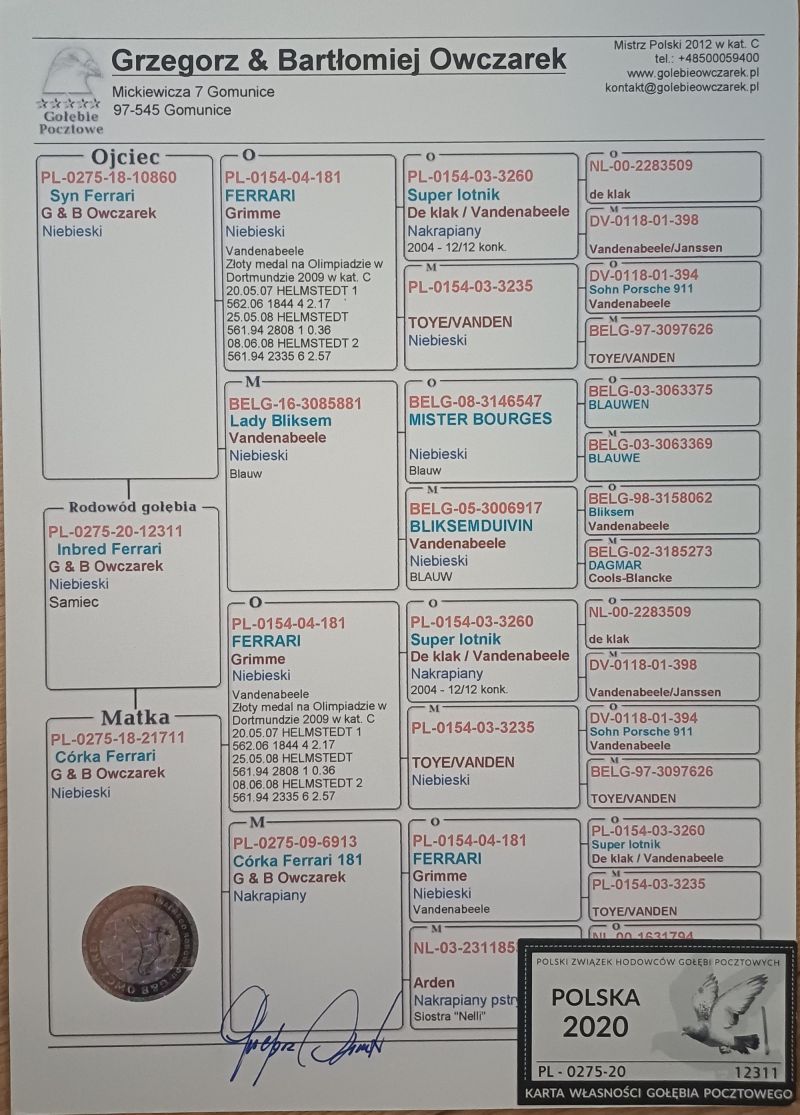 Grzegorz & Bartłomiej Owczarek
Mickiewicza 7 Gomunice
97-545 Gomunice
Mistrz Polski 2012 w kat. C
tel.: +48500059400
www.golebieowczarek.pl
kontakt@golebieowczarek.pl
Gołębie
Pocztowe
Ojciec
PL-0275-18-10860
Syn Ferrari
G & B Owczarek
Niebieski
Rodowód gołębia
PL-0275-20-12311
Inbred Ferrari
G & B Owczarek
Niebieski
Samiec
Matka
PL-0275-18-21711
Córka Ferrari
G & B Owczarek
Niebieski
O
PL-0154-04-181
FERRARI
Grimme
Niebieski
Vandenabeele
Złoty medal na Olimpiadzie w
Dortmundzie 2009 w kat. C
20.05.07 HELMSTEDT 1
562.06 1844 4 2.17
25.05.08 HELMSTEDT
561.94 2808 1 0.36
08.06.08 HELMSTEDT 2
561.94 2335 6 2.57
M
BELG-16-3085881
Lady Bliksem
Vandenabeele
Niebieski
Blauw
O
PL-0154-04-181
FERRARI
Grimme
Niebieski
Vandenabeele
Złoty medal na Olimpiadzie w
Dortmundzie 2009 w kat. C
20.05.07 HELMSTEDT 1
562.06 1844 4 2.17
25.05.08 HELMSTEDT
561.94 2808 1 0.36
08.06.08 HELMSTEDT 2
561.94 2335 6 2.57
M
PL-0275-09-6913
Córka Ferrari 181
G & B Owczarek
Nakrapiany
O
PL-0154-03-3260
Super lotnik
De klak / Vandenabeele
Nakrapiany
2004 - 12/12 konk.
M
PL-0154-03-3235
TOYE/VANDEN
Niebieski
O
BELG-08-3146547
MISTER BOURGES
Niebieski
Blauw
M
BELG-05-3006917
BLIKSEMDUIVIN
Vandenabeele
Niebieski
BLAUW
O
PL-0154-03-3260
Super lotnik
De klak / Vandenabeele
Nakrapiany
2004 - 12/12 konk.
M
PL-0154-03-3235
TOYE/VANDEN
Niebieski
O
PL-0154-04-181
FERRARI
Grimme
Niebieski
Vandenabeele
M
NL-03-231185
Arden
Nakrapiany pstry
Siostra "Nelli"
O
NL-00-2283509
de klak
M
DV-0118-01-398
Vandenabeele/Janssen
O
DV-0118-01-394
Sohn Porsche 911
Vandenabeele
M
BELG-97-3097626
TOYE/VANDEN
O
BELG-03-3063375
BLAUWEN
M
BELG-03-3063369
BLAUWE
O
BELG-98-3158062
Bliksem
Vandenabeele
M
BELG-02-3185273
DAGMAR
Cools-Blancke
O
NL-00-2283509
de klak
M
DV-0118-01-398
Vandenabeele/Janssen
O
DV-0118-01-394
Sohn Porsche 911
Vandenabeele
M
BELG-97-3097626
TOYE/VANDEN
O
PL-0154-03-3260
Super lotnik
De klak / Vandenabeele
M
PL-0154-03-3235
TOYE/VANDEN
O
NL-00-1631794
POLSKI ZWIĄZEK HODOWCÓW GOŁĘBI POCZTOWYCH
POLSKA
2020
PL - 0275-20 12311
KARTA WŁASNOŚCI GOŁĘBIA POCZTOWEGO